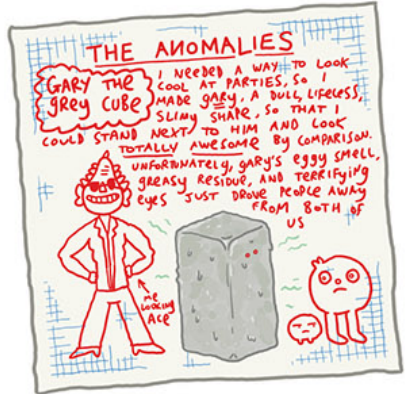 THE ANOMALIES
GARY THE
GREY CUBE
I NEEDED A WAY TO LOOK
COOL AT PARTIES, SO I
MADE GARY, A DULL, LIFELESS,
SLIMY SHAPE, SO THAT I
COULD STAND NEXT TO HIM AND LOOK
TOTALLY AWESOME BY COMPARISON.
UNFORTUNATELY, GARY'S EGGY SMELL,
GREASY RESIDUE, AND TERRIFYING
EYES JUST DROVE PEOPLE AWAY
FROM BOTH OF
US
ME
LOOKING
ACE